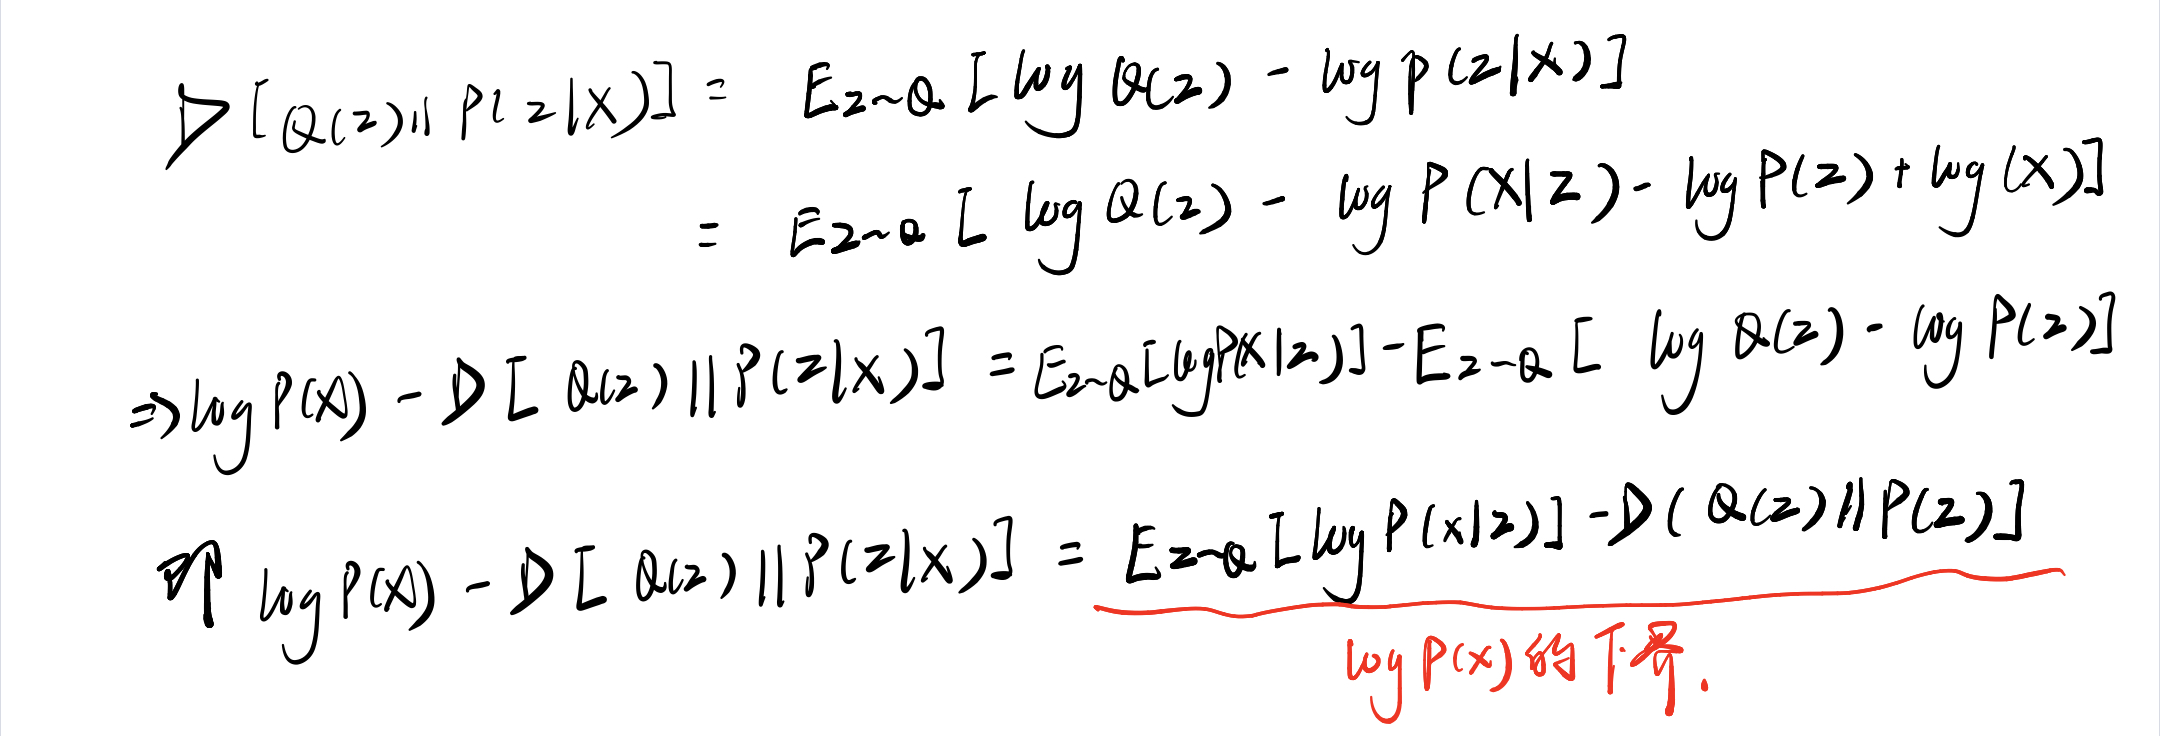 D[Q(z)||P(z|X)] = E_{z~Q}[log Q(z) - log P(z|X)]
= E_{z~Q}[log Q(z) - log P(X|z) - log P(z) + log(X)]
⇒ log P(X) - D[Q(z)||P(z|X)] = E_{z~Q}[log P(X|z)] - E_{z~Q}[log Q(z) - log P(z)]
log P(X) - D[Q(z)||P(z|X)] = E_{z~Q}[log P(X|z)] - D(Q(z)||P(z)]
log P(x) 的下界.